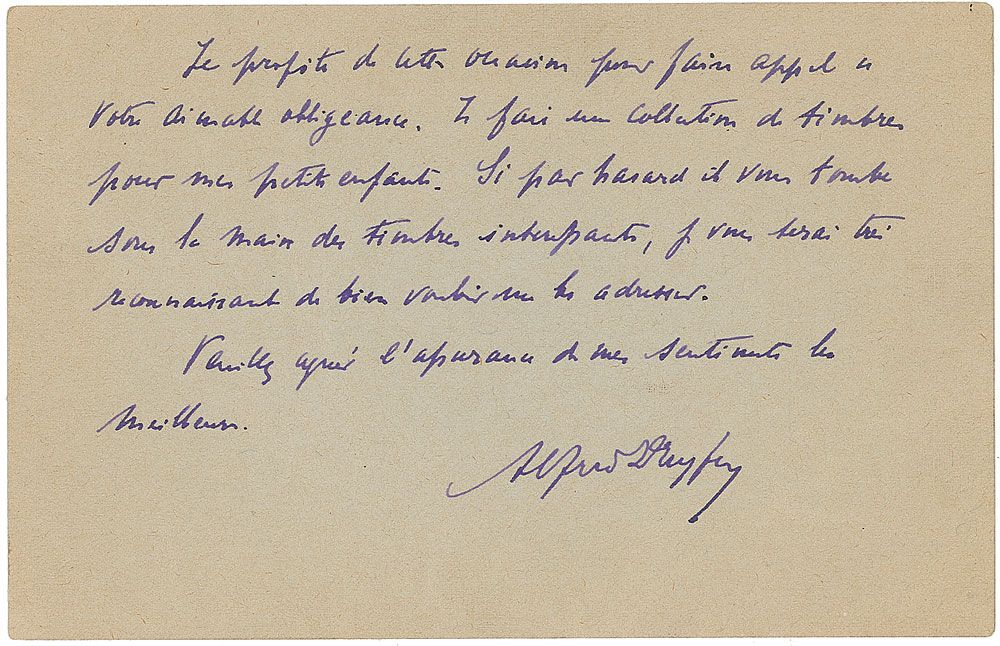 Je profite de cette occasion pour faire appel à
votre aimable obligeance. Je fais une collection de timbres
pour mes petits enfants. Si par hasard il vous tombe
sous la main des timbres intéressants, je vous serai très
reconnaissant de bien vouloir me les adresser.
Veuillez agréer l'assurance de mes sentiments les
meilleurs.
Alfred Dreyfus